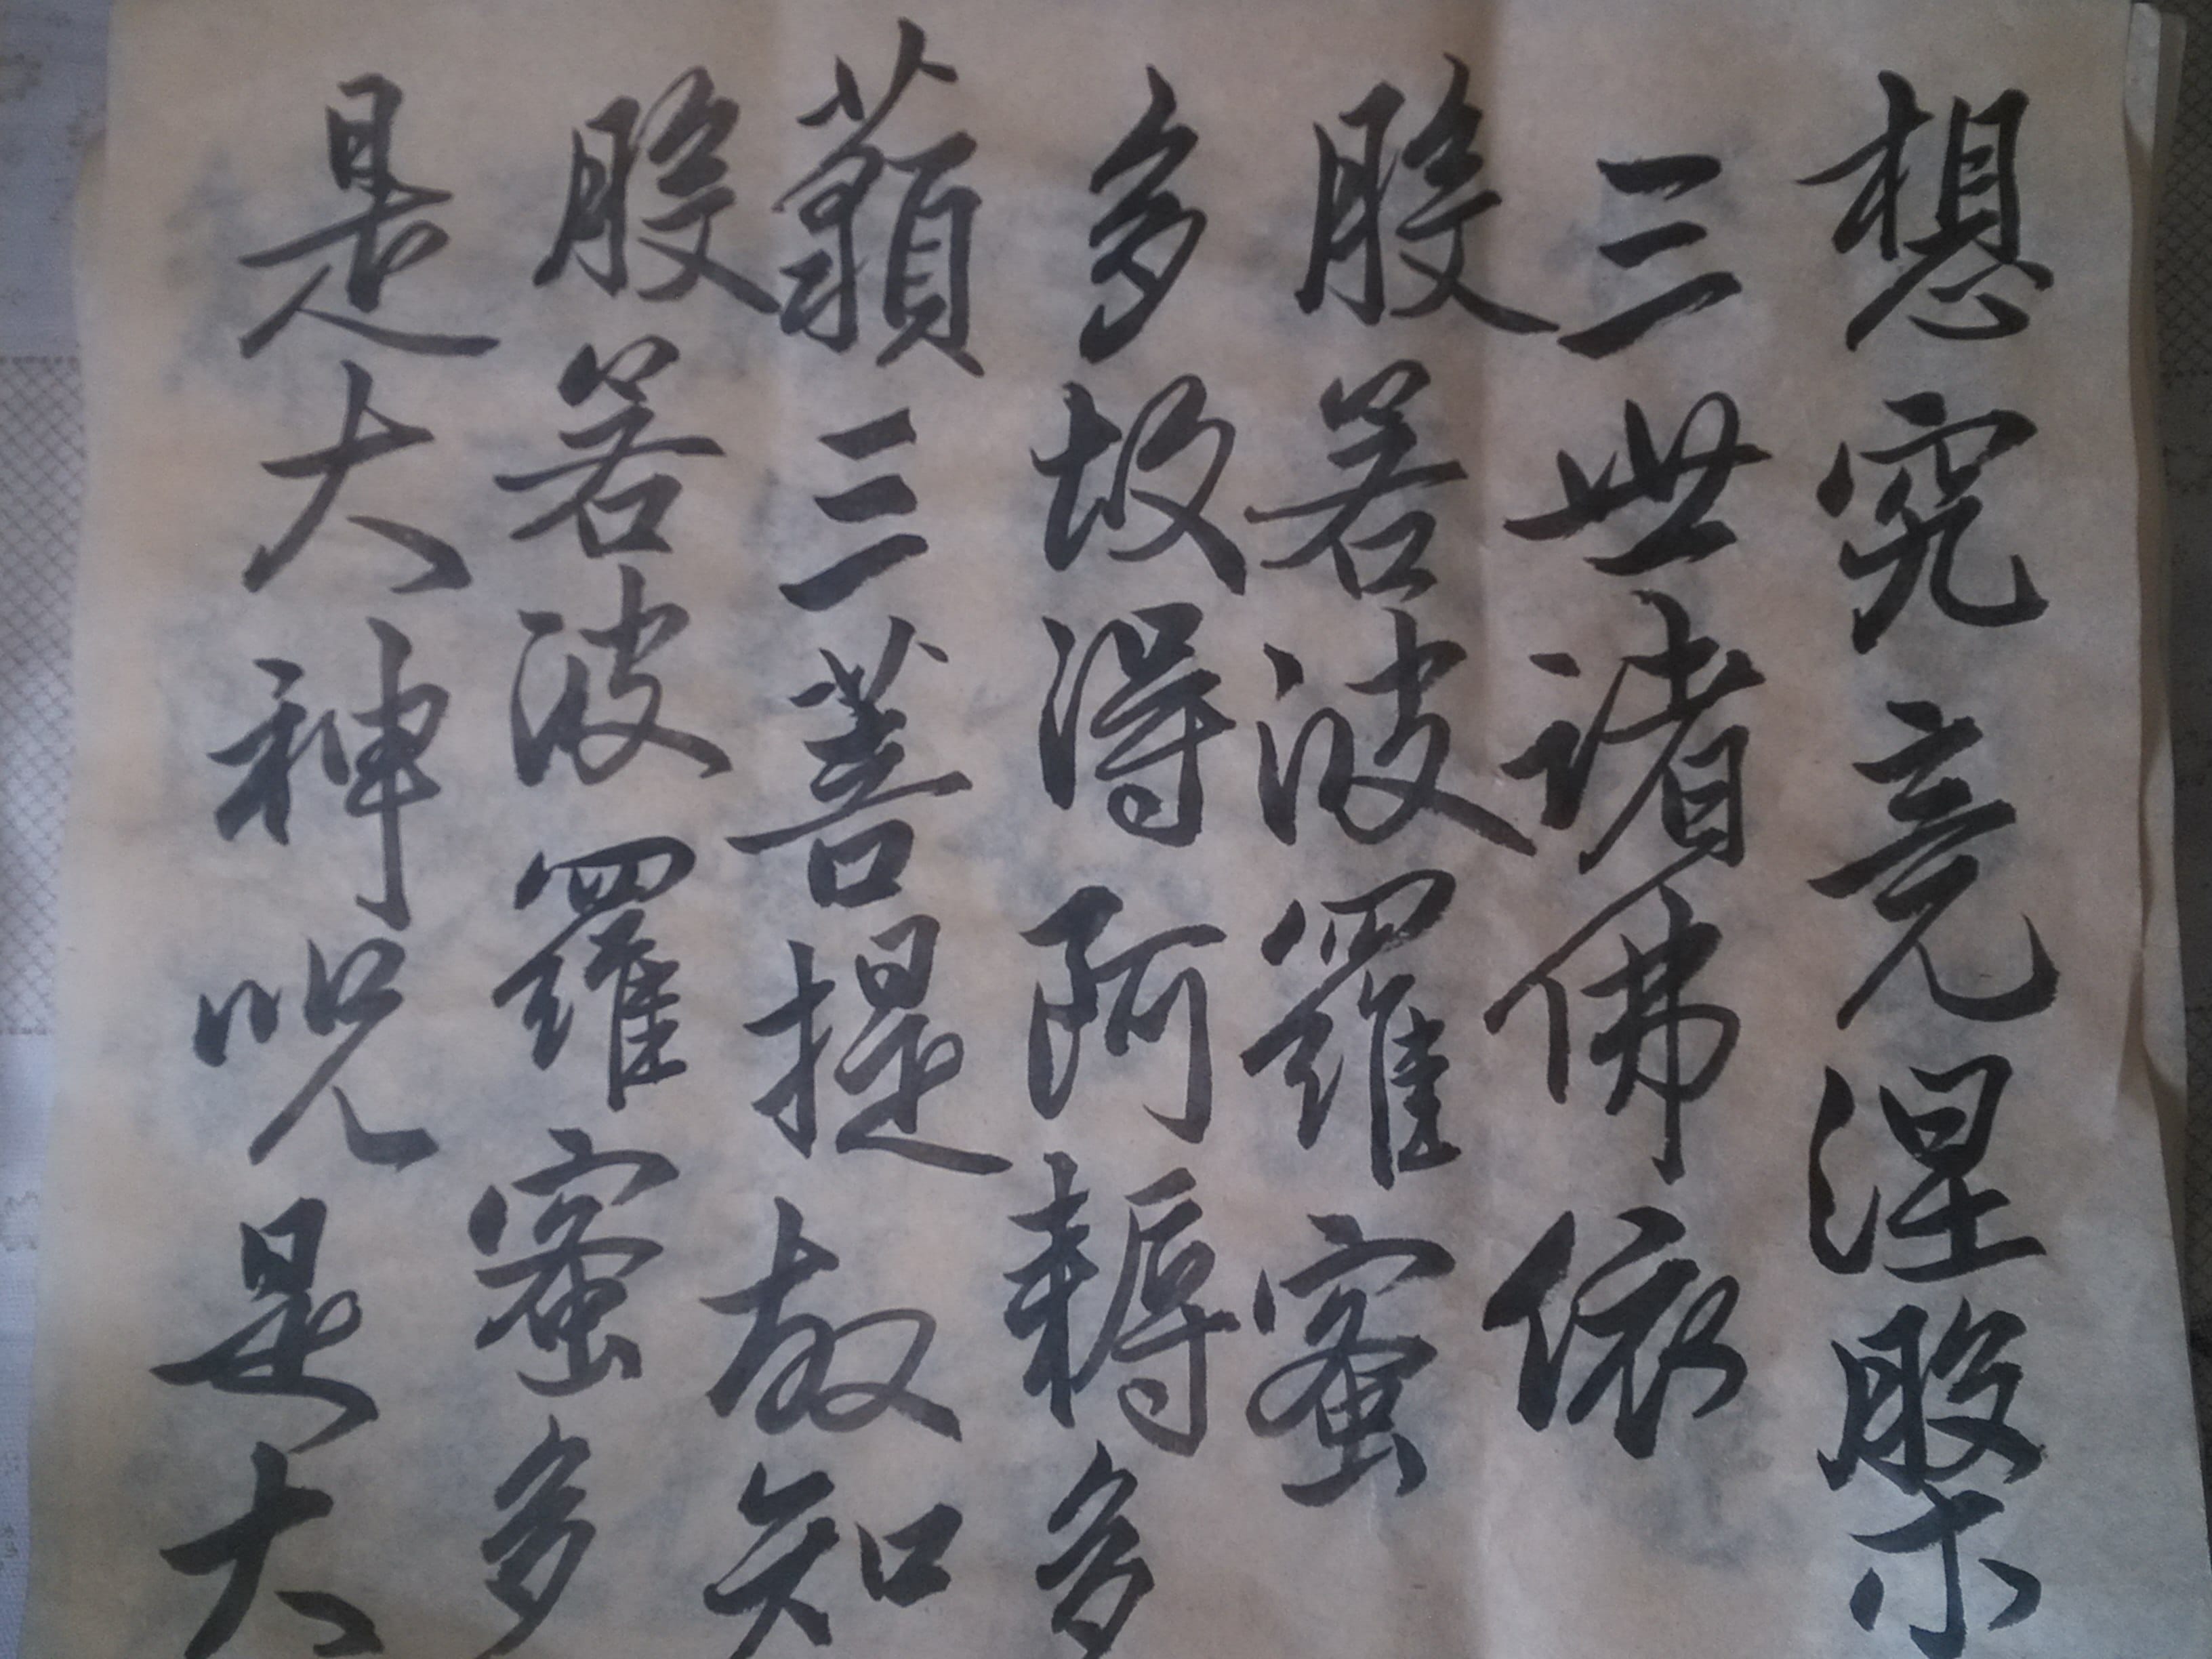 想究竟涅槃
三世諸佛依
般若波羅蜜
多故得阿耨多
藐三菩提故知
般若波羅蜜多
是大神呪是大